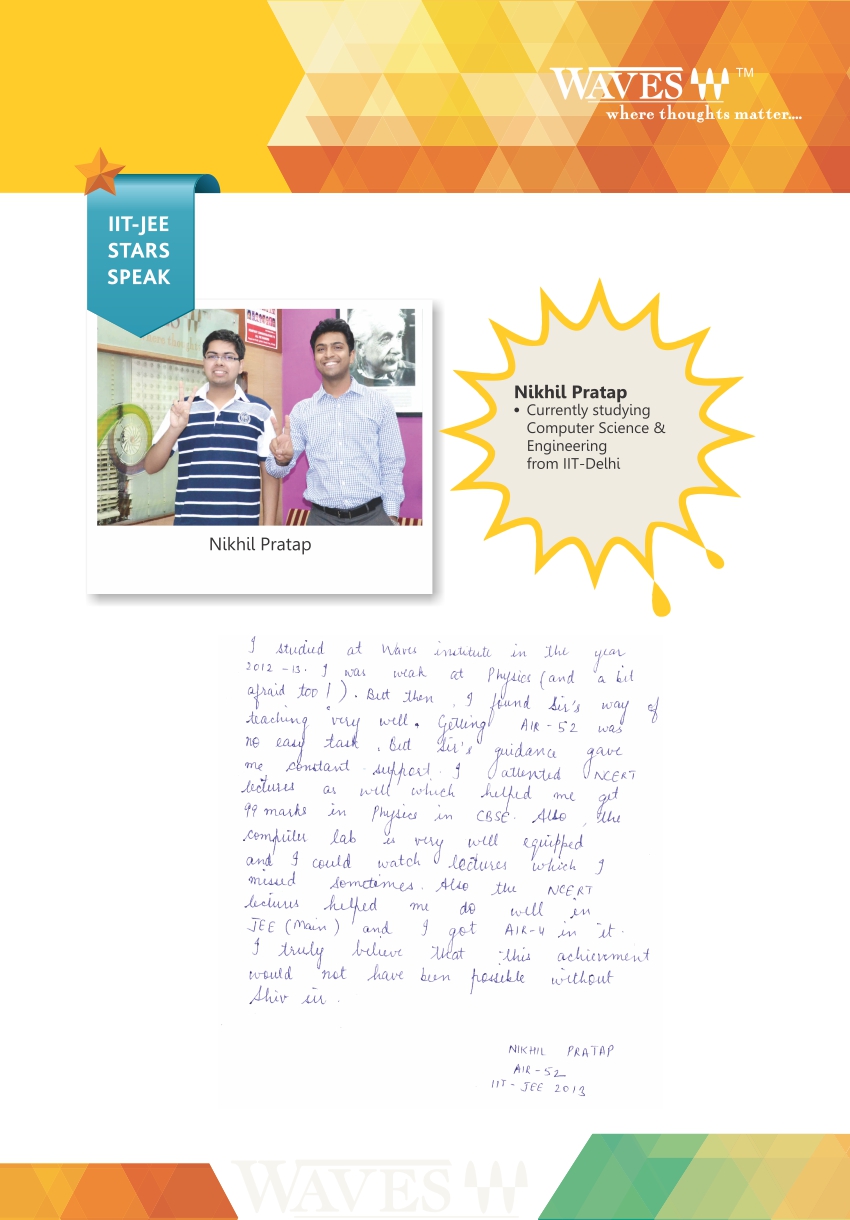 WAVES TM
where thoughts matter....
IIT-JEE
STARS
SPEAK
Nikhil Pratap
• Currently studying
Computer Science &
Engineering
from IIT-Delhi
Nikhil Pratap
I studied at Waves institute in the year
2012-13. I was weak at Physics (and a bit
afraid too!). But then, I found Sir's way of
teaching very well. Getting AIR-52 was
no easy task. But Sir's guidance gave
me constant support. I attented NCERT
lectures as well which helped me get
99 marks in Physics in CBSE. Also, the
computer lab is very well equipped
and I could watch lectures which I
missed sometimes. Also the NCERT
lectures helped me do well in
JEE (Main) and I got AIR-4 in it.
I truly believe that this achievement
would not have been possible without
Shiv sir.
NIKHIL PRATAP
AIR-52
IIT-JEE 2013
WAVES